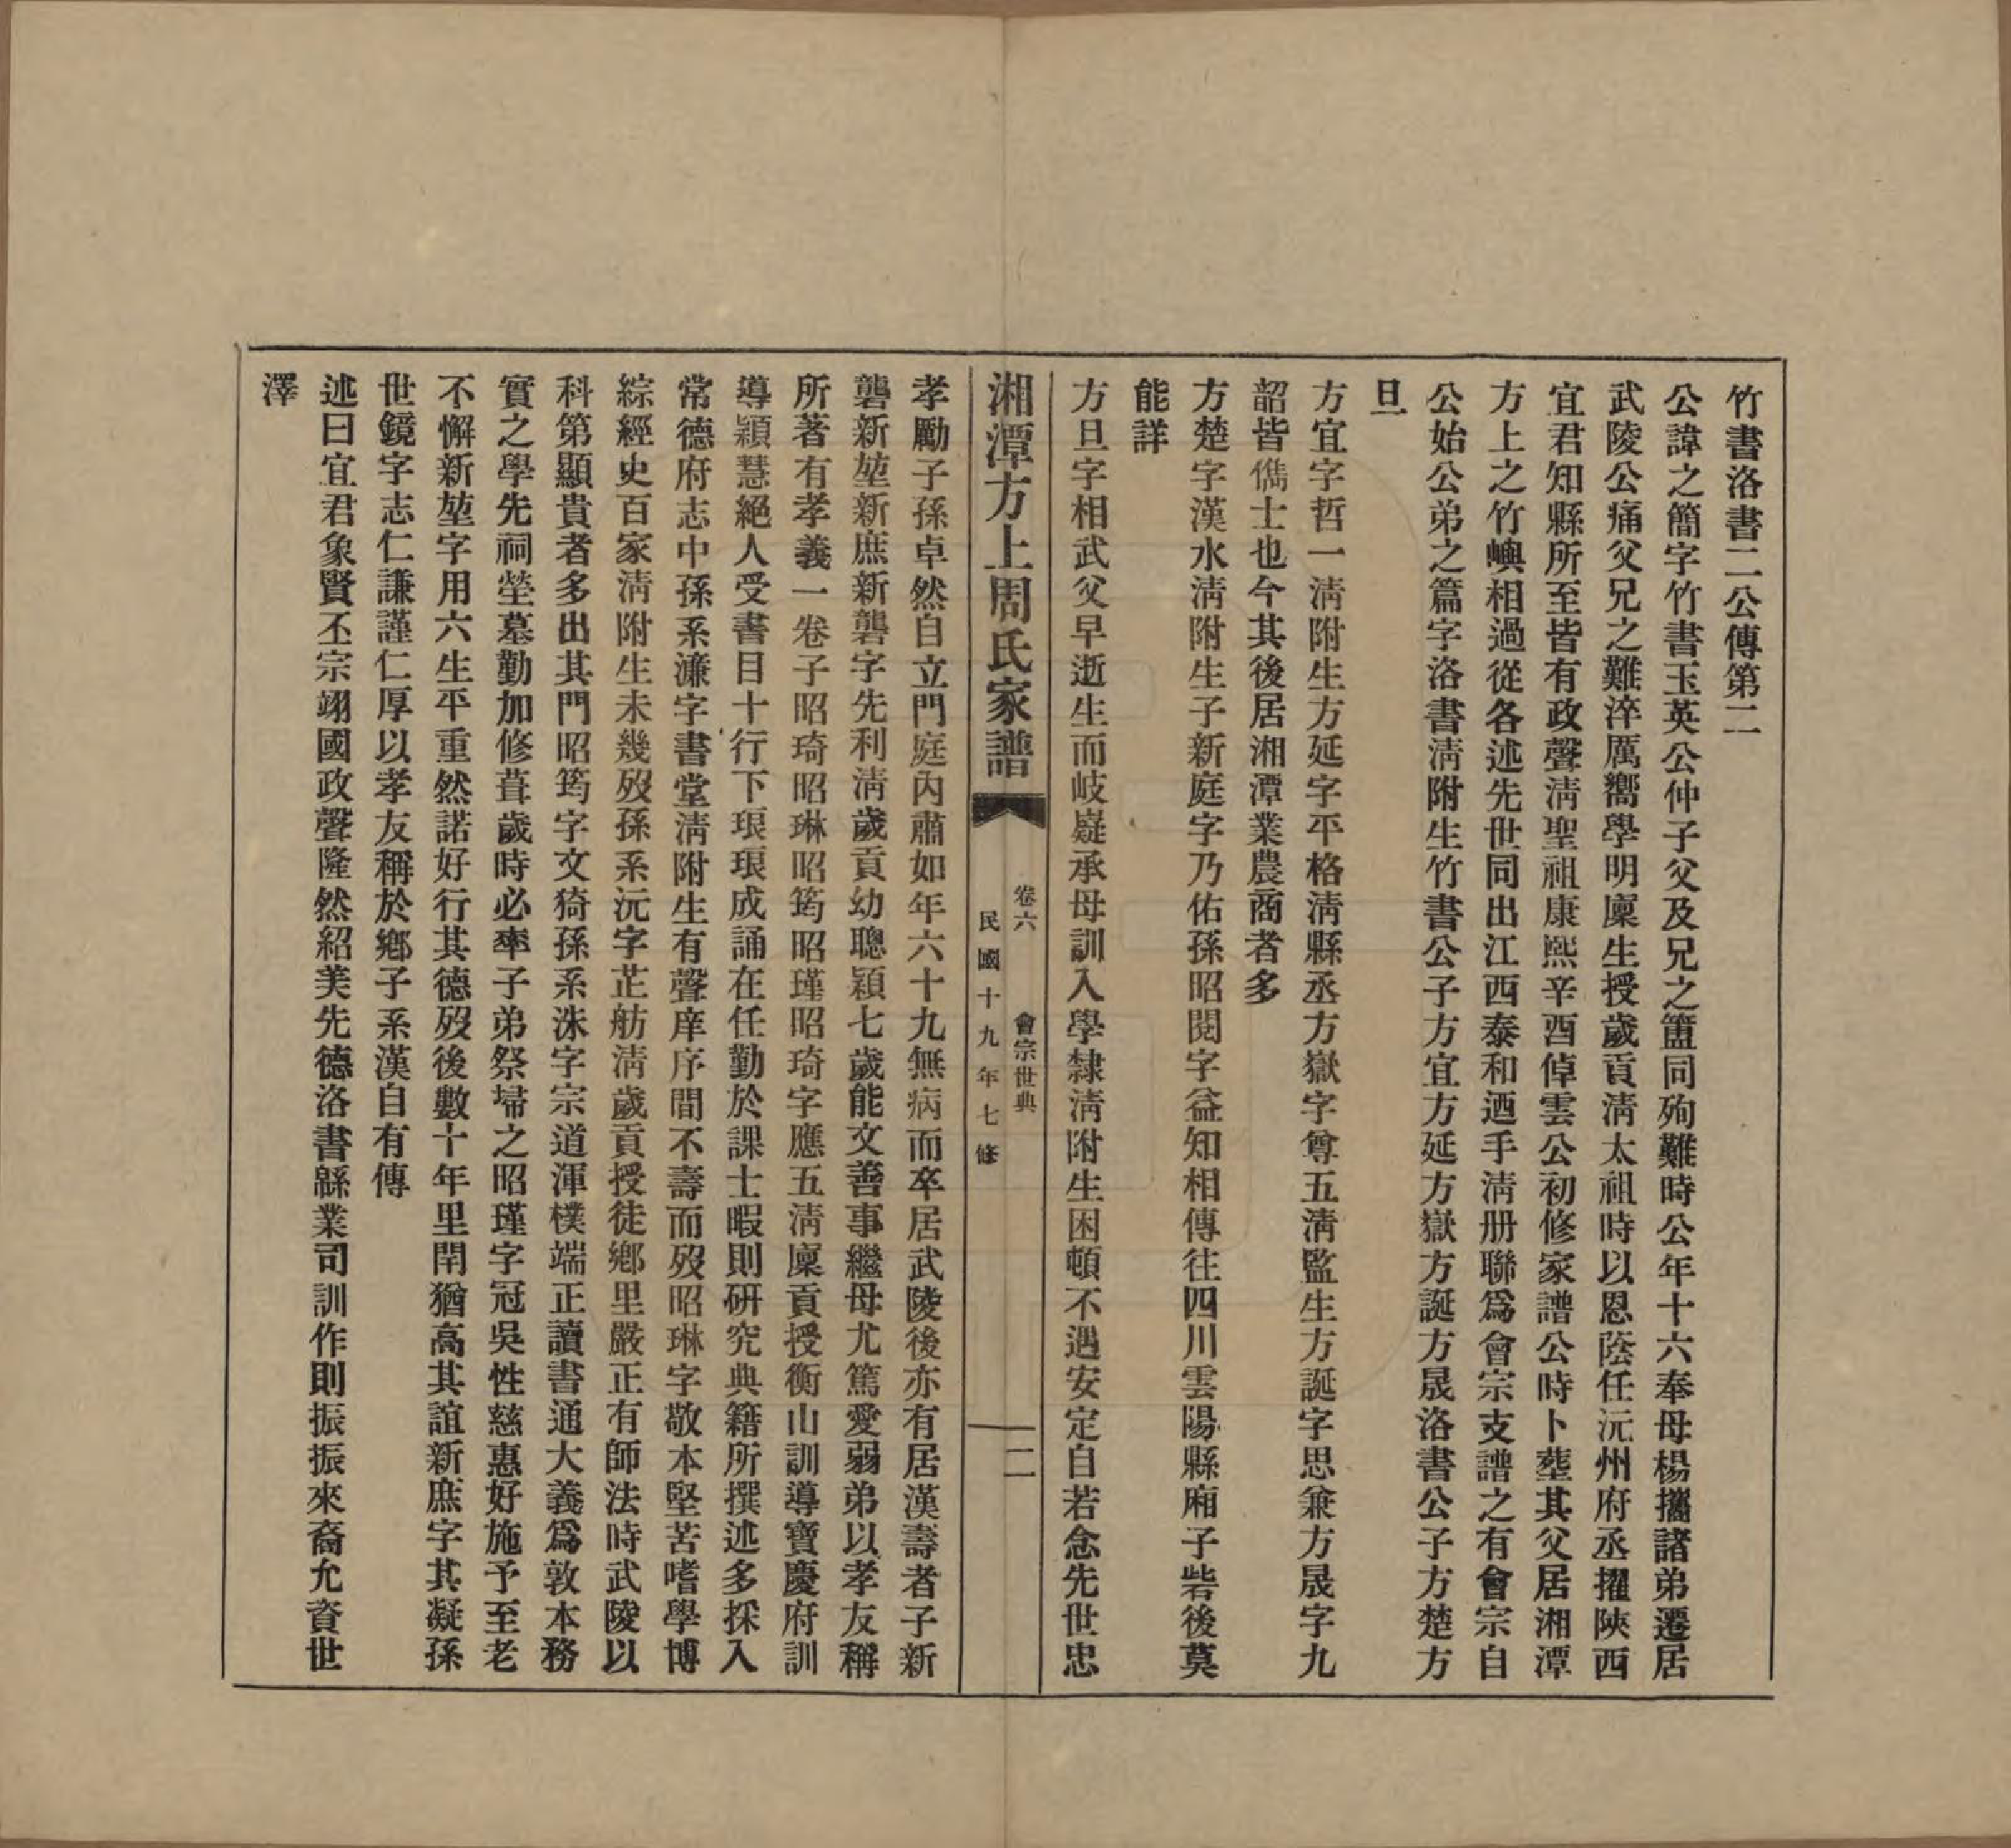 竹書洛書二公傳第二
公諱之簡字竹書玉英公仲子父及兄之簠同殉難時公年十六奉母楊攜諸弟遷居
武陵公痛父兄之難淬厲嚮學明廩生授歲貢淸太祖時以恩蔭任沅州府丞擢陝西
宜君知縣所至皆有政聲淸聖祖康熙辛酉倬雲公初修家譜公時卜塟其父居湘潭
方上之竹嶼相過從各述先世同出江西泰和迺手淸册聯爲會宗支譜之有會宗自
公始公弟之篇字洛書淸附生竹書公子方宜方延方嶽方誕方晟洛書公子方楚方
旦
方宜字哲一淸附生方延字平格淸縣丞方嶽字尊五淸監生方誕字思兼方晟字九
韶皆儁士也今其後居湘潭業農商者多
方楚字漢水淸附生子新庭字乃佑孫昭閱字益知相傳往四川雲陽縣廂子砦後莫
能詳
方旦字相武父早逝生而岐嶷承母訓入學隸淸附生困頓不遇安定自若念先世忠
湘潭方上周氏家譜
卷六 會宗世典
民國十九年七修
二
孝勵子孫卓然自立門庭內肅如年六十九無病而卒居武陵後亦有居漢壽者子新
礱新堃新庶新礱字先利淸歲貢幼聰穎七歲能文善事繼母尤篤愛弱弟以孝友稱
所著有孝義一卷子昭琦昭琳昭筠昭瑾昭琦字應五淸廩貢授衡山訓導寶慶府訓
導穎慧絕人受書目十行下琅琅成誦在任勤於課士暇則研究典籍所撰述多採入
常德府志中孫系濂字書堂淸附生有聲庠序間不壽而歿昭琳字敬本堅苦嗜學博
綜經史百家淸附生未幾歿孫系沅字芷舫淸歲貢授徒鄉里嚴正有師法時武陵以
科第顯貴者多出其門昭筠字文猗孫系洙字宗道渾樸端正讀書通大義爲敦本務
實之學先祠塋墓勤加修葺歲時必率子弟祭埽之昭瑾字冠吳性慈惠好施予至老
不懈新堃字用六生平重然諾好行其德歿後數十年里閈猶高其誼新庶字其凝孫
世鏡字志仁謙謹仁厚以孝友稱於鄉子系漢自有傳
述曰宜君象賢丕宗翊國政聲隆然紹美先德洛書繇業司訓作則振振來裔允資世
澤